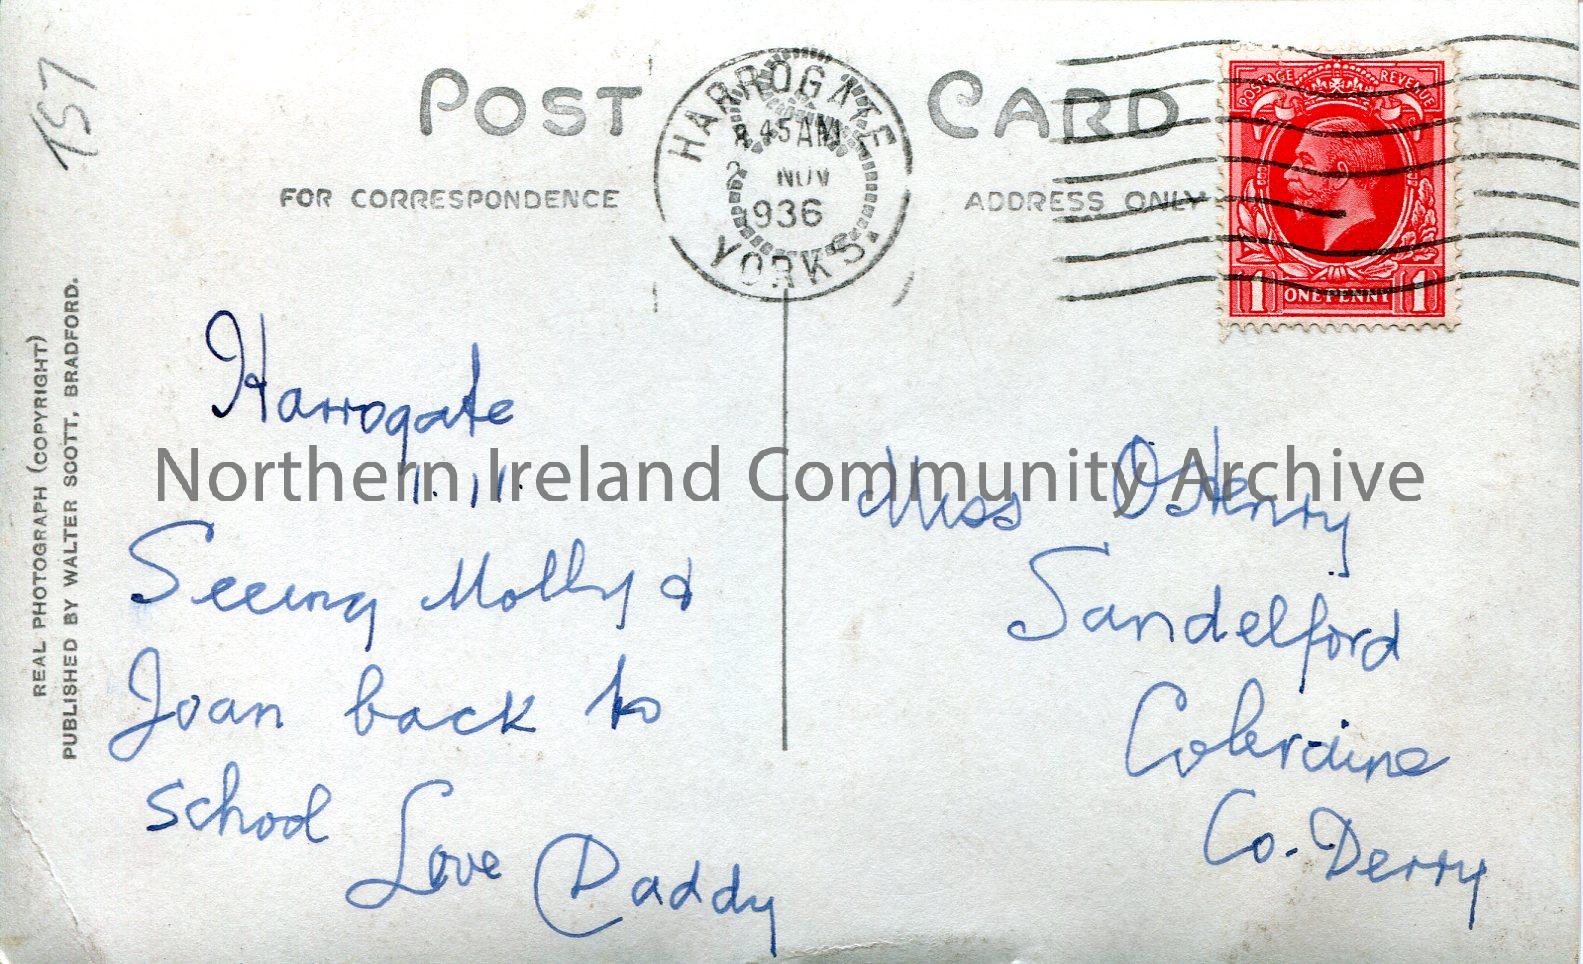 157
POST CARD
FOR CORRESPONDENCE
ADDRESS ONLY
HARROGATE
45 AM
2 NOV
1936
YORKS.
POSTAGE REVENUE
1 ONE PENNY 1
REAL PHOTOGRAPH (COPYRIGHT)
PUBLISHED BY WALTER SCOTT, BRADFORD.
Harrogate
1.11.
Seeing Molly &
Joan back to
school
Love Daddy
Miss O'Henry
Sandelford
Coleraine
Co. Derry
Northern Ireland Community Archive